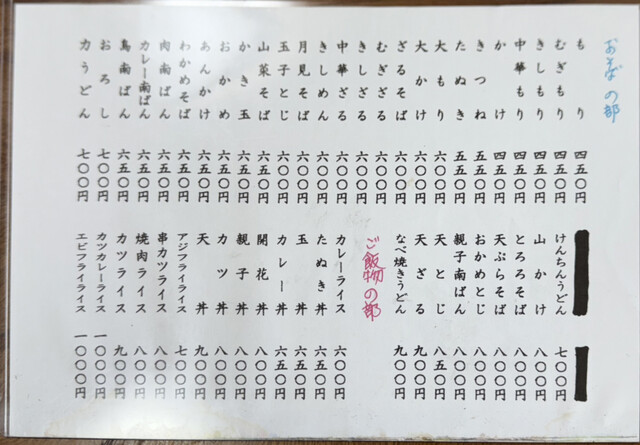 おそばの部
もり 四五〇円
むぎもり 四五〇円
きしもり 四五〇円
中華もり 四五〇円
かけ 四五〇円
きつね 五五〇円
たぬき 五五〇円
大もり 六五〇円
大かけ 六五〇円
ざるそば 六〇〇円
むぎざる 六〇〇円
きしざる 六〇〇円
中華ざる 六〇〇円
きしめん 六〇〇円
月見そば 六〇〇円
玉子とじ 六〇〇円
山菜そば 六〇〇円
かき玉 六五〇円
おかめ 六五〇円
あんかけ 六五〇円
わかめそば 六五〇円
肉南ばん 六五〇円
カレー南ばん 六五〇円
鳥南ばん 六五〇円
おろし 七〇〇円
力うどん 七〇〇円
けんちんうどん 七〇〇円
山かけ 八〇〇円
とろろそば 八〇〇円
天ぷらそば 八〇〇円
おかめとじ 八〇〇円
親子南ばん 八〇〇円
天とじ 八五〇円
天ざる 九〇〇円
なべ焼きうどん 九〇〇円
ご飯物の部
カレーライス 六〇〇円
たぬき丼 六五〇円
玉丼 六五〇円
カレー丼 六五〇円
開花丼 八〇〇円
親子丼 八〇〇円
カツ丼 八〇〇円
天丼 九〇〇円
アジフライライス 七〇〇円
串カツライス 八〇〇円
焼肉ライス 八〇〇円
カツライス 九〇〇円
カツカレーライス 一〇〇〇円
エビフライライス 一〇〇〇円